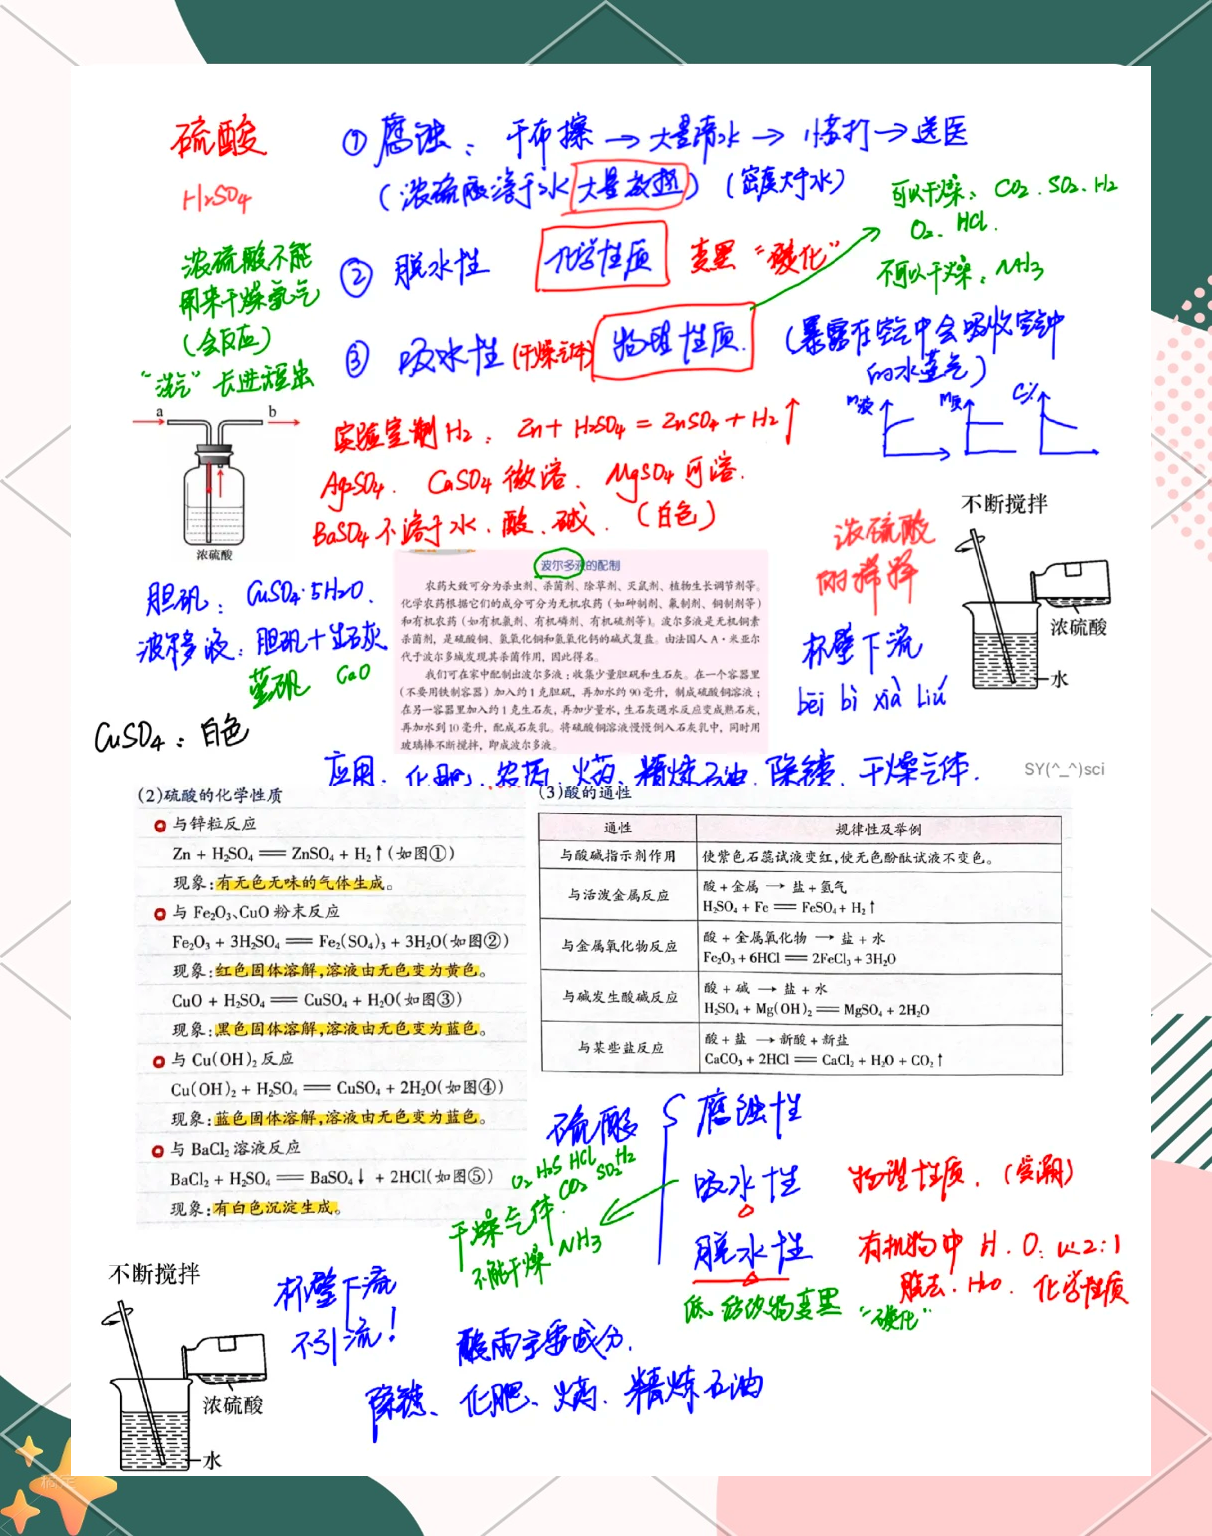 硫酸
H₂SO₄
① 腐蚀：干布擦 → 大量清水 → 小苏打 → 送医
（浓硫酸溶于水 大量放热）（密度大于水）
可以干燥：CO₂．SO₂．H₂
O₂．HCl．
不可以干燥：NH₃
浓硫酸不能
用来干燥氨气
（会反应）
“洗气”长进短出
② 脱水性 化学性质 变黑“碳化”
③ 吸水性（干燥气体）物理性质．（暴露在空气中会吸收空气中
的水蒸气）
m液 m质 C%
a b
浓硫酸
实验室制H₂：Zn + H₂SO₄ = ZnSO₄ + H₂↑
Ag₂SO₄．CaSO₄微溶．MgSO₄可溶．
BaSO₄不溶于水．酸．碱．（白色）
浓硫酸
的稀释
不断搅拌
浓硫酸
水
杯壁下流
bēi bì xià liú
胆矾：CuSO₄·5H₂O．
波尔多液：胆矾＋生石灰
蓝矾 CaO
CuSO₄：白色
波尔多液的配制
农药大致可分为杀虫剂、杀菌剂、除草剂、灭鼠剂、植物生长调节剂等。
化学农药根据它们的成分可分为无机农药（如砷制剂、氟制剂、铜制剂等）
和有机农药（如有机氯剂、有机磷剂、有机硫剂等）。波尔多液是无机铜素
杀菌剂，是硫酸铜、氢氧化铜和氢氧化钙的碱式复盐。由法国人A·米亚尔
代于波尔多城发现其杀菌作用，因此得名。
我们可在家中配制出波尔多液：收集少量胆矾和生石灰。在一个容器里
（不要用铁制容器）加入约1克胆矾，再加水约90毫升，制成硫酸铜溶液；
在另一容器里加入约1克生石灰，再加少量水，生石灰遇水反应变成熟石灰，
再加水到10毫升，配成石灰乳。将硫酸铜溶液慢慢倒入石灰乳中，同时用
玻璃棒不断搅拌，即成波尔多液。
应用．化肥．农药．火药．精炼石油．除锈．干燥气体．
SY(^_^)sci
(2)硫酸的化学性质
与锌粒反应
Zn + H₂SO₄ ══ ZnSO₄ + H₂↑(如图①)
现象:有无色无味的气体生成。
与 Fe₂O₃、CuO 粉末反应
Fe₂O₃ + 3H₂SO₄ ══ Fe₂(SO₄)₃ + 3H₂O(如图②)
现象:红色固体溶解,溶液由无色变为黄色。
CuO + H₂SO₄ ══ CuSO₄ + H₂O(如图③)
现象:黑色固体溶解,溶液由无色变为蓝色。
与 Cu(OH)₂反应
Cu(OH)₂ + H₂SO₄ ══ CuSO₄ + 2H₂O(如图④)
现象:蓝色固体溶解,溶液由无色变为蓝色。
与 BaCl₂溶液反应
BaCl₂ + H₂SO₄ ══ BaSO₄↓ + 2HCl(如图⑤)
现象:有白色沉淀生成。
(3)酸的通性
通性 规律性及举例
与酸碱指示剂作用 使紫色石蕊试液变红,使无色酚酞试液不变色。
与活泼金属反应 酸 + 金属 → 盐 + 氢气
H₂SO₄ + Fe ══ FeSO₄ + H₂↑
与金属氧化物反应 酸 + 金属氧化物 → 盐 + 水
Fe₂O₃ + 6HCl ══ 2FeCl₃ + 3H₂O
与碱发生酸碱反应 酸 + 碱 → 盐 + 水
H₂SO₄ + Mg(OH)₂ ══ MgSO₄ + 2H₂O
与某些盐反应 酸 + 盐 → 新酸 + 新盐
CaCO₃ + 2HCl ══ CaCl₂ + H₂O + CO₂↑
硫酸
腐蚀性
吸水性 物理性质．（常温）
脱水性 有机物中 H．O．以2:1
脱去．H₂O．化学性质
使 变黑“碳化”
O₂ H₂S HCl
CO₂ SO₂ H₂
干燥气体．
不能干燥 NH₃
不断搅拌
浓硫酸
水
杯壁下流
不引流！
酸雨主要成分．
除锈、化肥、火药．精炼石油
搞定